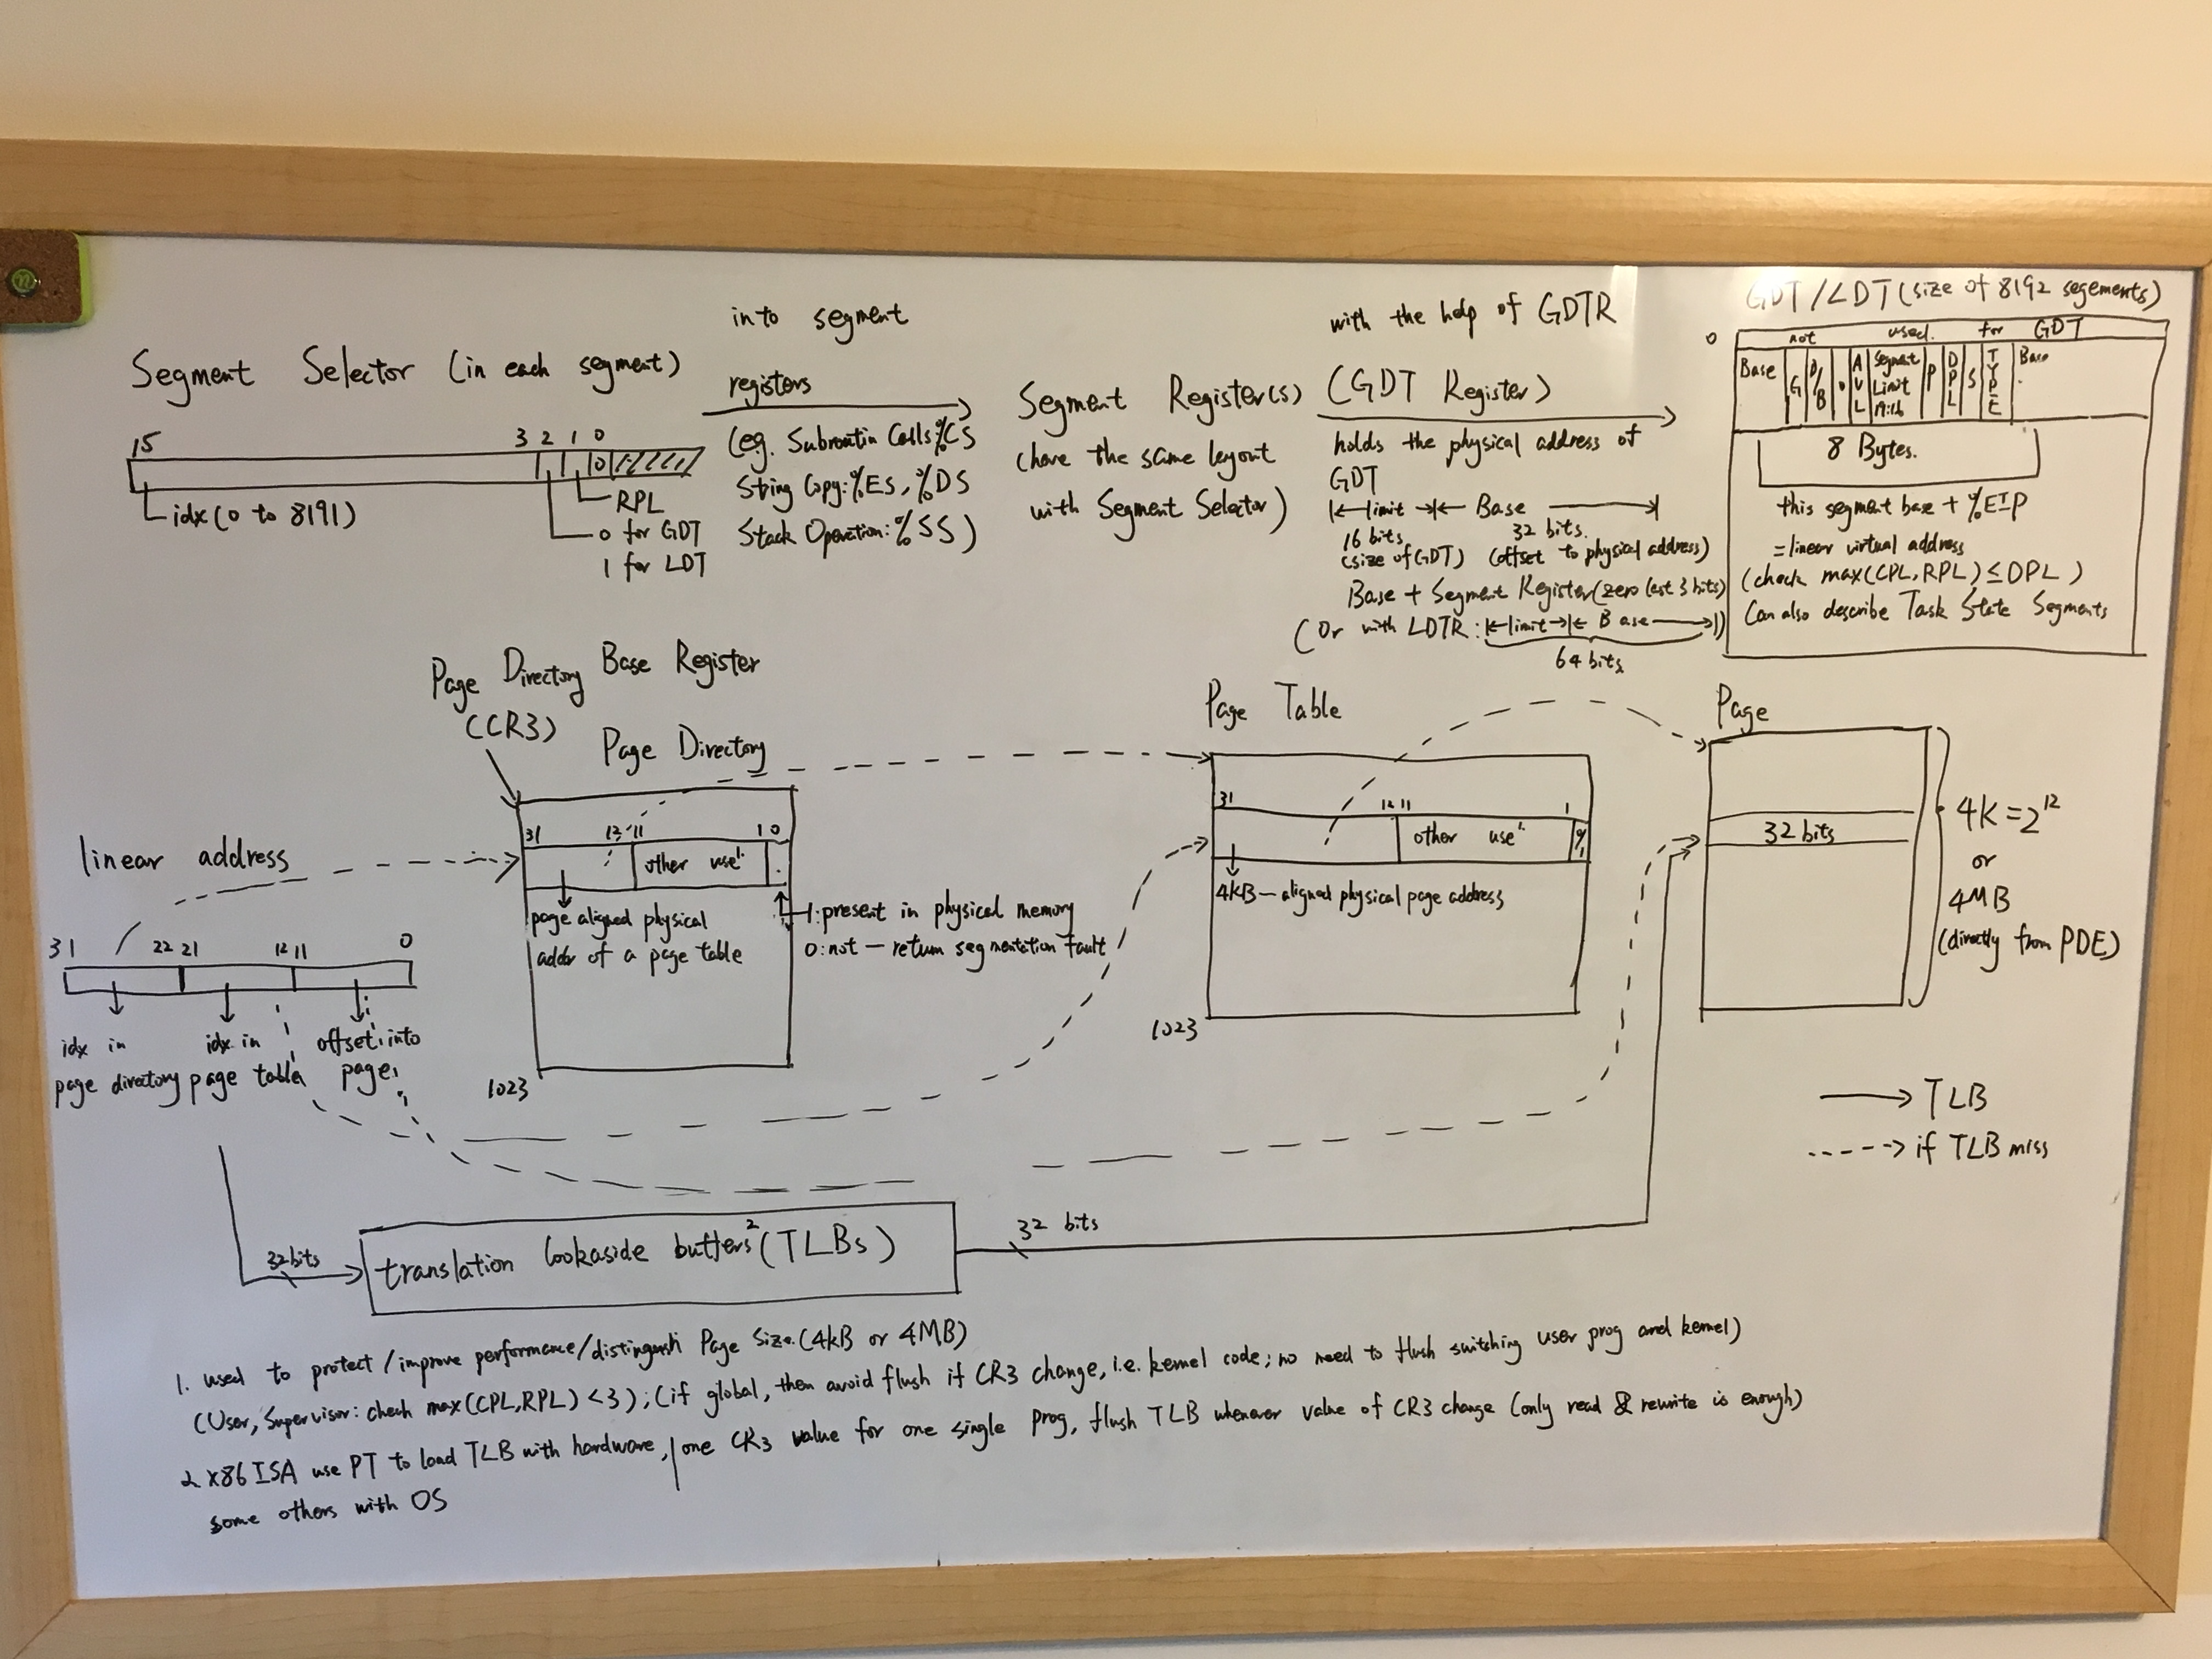 Segment Selector (in each segment)
15 3 2 1 0
0
idx (0 to 8191)
RPL
0 for GDT
1 for LDT
into segment
registers
(eg. Subroutin Calls:%CS
String Copy:%ES, %DS
Stack Operation: %SS)
Segment Register(s)
(have the same layout
with Segment Selector)
with the help of GDTR
(GDT Register)
holds the physical address of
GDT
limit Base
16 bits 32 bits.
(size of GDT) (offset to physical address)
Base + Segment Register (zero last 3 bits)
(Or with LDTR: limit Base )
64 bits
GDT/LDT (size of 8192 segements)
0 not used for GDT
Base G D/B 0 AVL Segment Limit 19:16 P DPL S TYPE Base
8 Bytes.
this segment base + %EIP
=linear virtual address
(check max(CPL,RPL) ≤ DPL)
Can also describe Task State Segments
Page Directory Base Register
(CR3)
Page Directory
31 12 11 1 0
other use¹
page aligned physical
addr of a page table
1023
1: present in physical memory
0: not — return segmentation fault
linear address
31 22 21 12 11 0
idx in
page directory
idx in
page table
offset into
page
Page Table
31 12 11 1
other use¹ 0/1
4kB — aligned physical page address
1023
Page
32 bits
4K = 2¹²
or
4MB
(directly from PDE)
TLB
if TLB miss
32 bits
translation lookaside buffers² (TLBs)
32 bits
1. used to protect/improve performance/distinguish Page Size. (4kB or 4MB)
(User, Supervisor: check max(CPL,RPL) <3); (if global, then avoid flush if CR3 change, i.e. kernel code; no need to flush switching user prog and kernel)
2 x86 ISA use PT to load TLB with hardware, one CR3 value for one single prog, flush TLB whenever value of CR3 change (only read & rewrite is enough)
some others with OS